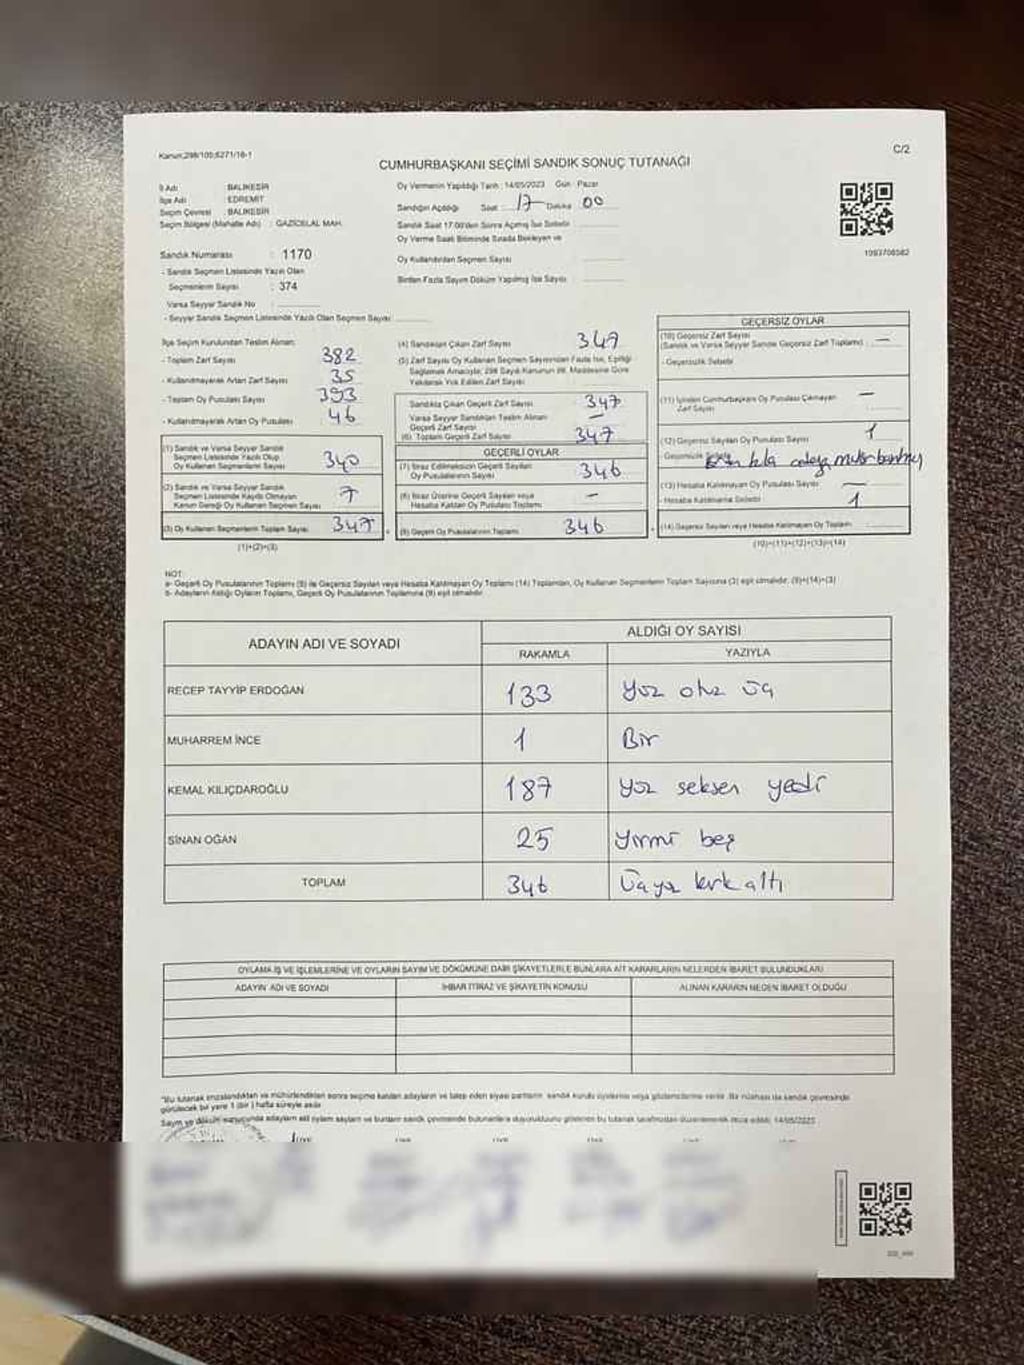 Kanun;298/105;6271/16-1
C/2
CUMHURBAŞKANI SEÇİMİ SANDIK SONUÇ TUTANAĞI
İl Adı : BALIKESİR
İlçe Adı : EDREMİT
Seçim Çevresi : BALIKESİR
Seçim Bölgesi (Mahalle Adı) : GAZİCELAL MAH.
Oy Vermenin Yapıldığı Tarih : 14/05/2023 Gün : Pazar
Sandığın Açıldığı Saat : 17 Dakika 00
Sandık Saat 17:00'den Sonra Açılmış İse Sebebi :
Oy Verme Saati Bitiminde Sırada Bekleyen ve
Oy Kullandırılan Seçmen Sayısı :
Birden Fazla Sayım Döküm Yapılmış İse Sayısı :
1093706582
Sandık Numarası : 1170
- Sandık Seçmen Listesinde Yazılı Olan
Seçmenlerin Sayısı : 374
Varsa Seyyar Sandık No :
- Seyyar Sandık Seçmen Listesinde Yazılı Olan Seçmen Sayısı :
İlçe Seçim Kurulundan Teslim Alınan;
- Toplam Zarf Sayısı 382
- Kullanılmayarak Artan Zarf Sayısı 35
- Toplam Oy Pusulası Sayısı 393
- Kullanılmayarak Artan Oy Pusulası 46
(1) Sandık ve Varsa Seyyar Sandık
Seçmen Listesinde Yazılı Olup
Oy Kullanan Seçmenlerin Sayısı 340
(2) Sandık ve Varsa Seyyar Sandık
Seçmen Listesinde Kayıtlı Olmayan
Kanun Gereği Oy Kullanan Seçmen Sayısı 7
(3) Oy Kullanan Seçmenlerin Toplam Sayısı 347
(1)+(2)=(3)
(4) Sandıktan Çıkan Zarf Sayısı 347
(5) Zarf Sayısı Oy Kullanan Seçmen Sayısından Fazla İse, Eşitliği
Sağlamak Amacıyla; 298 Sayılı Kanunun 98. Maddesine Göre
Yakılarak Yok Edilen Zarf Sayısı :
Sandıkta Çıkan Geçerli Zarf Sayısı 347
Varsa Seyyar Sandıktan Teslim Alınan
Geçerli Zarf Sayısı —
(6) Toplam Geçerli Zarf Sayısı 347
GEÇERLİ OYLAR
(7) İtiraz Edilmeksizin Geçerli Sayılan
Oy Pusulalarının Sayısı 346
(8) İtiraz Üzerine Geçerli Sayılan veya
Hesaba Katılan Oy Pusulası Toplamı –
(9) Geçerli Oy Pusulalarının Toplamı 346
GEÇERSİZ OYLAR
(10) Geçersiz Zarf Sayısı
(Sandık ve Varsa Seyyar Sandık Geçersiz Zarf Toplamı) —
- Geçersizlik Sebebi
(11) İçinden Cumhurbaşkanı Oy Pusulası Çıkmayan
Zarf Sayısı —
(12) Geçersiz Sayılan Oy Pusulası Sayısı 1
- Geçersizlik Sebebi
(13) Hesaba Katılmayan Oy Pusulası Sayısı —
- Hesaba Katılmama Sebebi 1
(14) Geçersiz Sayılan veya Hesaba Katılmayan Oy Toplamı
(10)+(11)+(12)+(13)=(14)
NOT:
a- Geçerli Oy Pusulalarının Toplamı (9) ile Geçersiz Sayılan veya Hesaba Katılmayan Oy Toplamı (14) Toplamları, Oy Kullanan Seçmenlerin Toplam Sayısına (3) eşit olmalıdır. (9)+(14)=(3)
b- Adayların Aldığı Oyların Toplamı, Geçerli Oy Pusulalarının Toplamına (9) eşit olmalıdır.
ADAYIN ADI VE SOYADI
ALDIĞI OY SAYISI
RAKAMLA YAZIYLA
RECEP TAYYİP ERDOĞAN 133 Yüz otuz üç
MUHARREM İNCE 1 Bir
KEMAL KILIÇDAROĞLU 187 Yüz seksen yedi
SİNAN OĞAN 25 Yirmi beş
TOPLAM 346 Üçyüz kırk altı
OYLAMA İŞ VE İŞLEMLERİNE VE OYLARIN SAYIM VE DÖKÜMÜNE DAİR ŞİKAYETLERLE BUNLARA AİT KARARLARIN NELERDEN İBARET BULUNDUKLARI
ADAYIN ADI VE SOYADI İHBAR İTİRAZ VE ŞİKAYETİN KONUSU ALINAN KARARIN NEDEN İBARET OLDUĞU